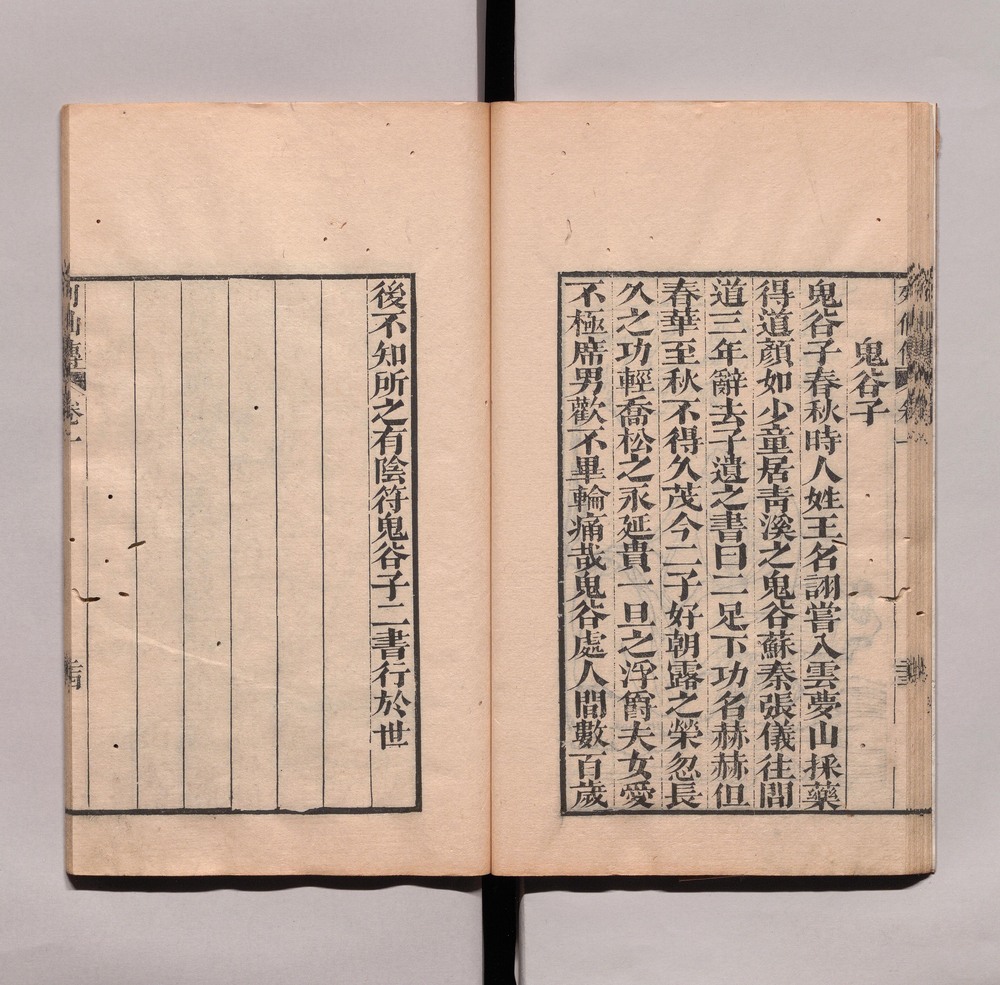 鬼谷子
鬼谷子春秋時人姓王名詡嘗入雲夢山採藥
得道顔如少童居靑溪之鬼谷蘇秦張儀往問
道三年辭去子遺之書曰二足下功名赫赫但
春華至秋不得久茂今二子好朝露之榮忽長
久之功輕喬松之永延貴一旦之浮爵夫女愛
不極席男歡不畢輪痛哉鬼谷處人間數百歲
後不知所之有陰符鬼谷子二書行於世
列仙傳 卷一